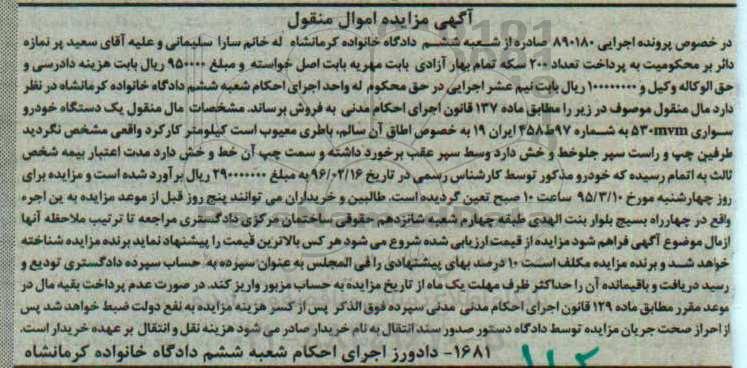 آگهی مزایده اموال منقول
در خصوص پرونده اجرایی ۸۹۰۱۸۰ صادره از شعبه ششم دادگاه خانواده کرمانشاه له خانم سارا سلیمانی و علیه آقای سعید پر نمازه
دائر بر محکومیت به پرداخت تعداد ۲۰۰ سکه تمام بهار آزادی بابت مهریه بابت اصل خواسته و مبلغ ۹۵۰۰۰۰ ریال بابت هزینه دادرسی و
حق الوکاله وکیل و ۱۰۰۰۰۰۰۰۰ ریال بابت نیم عشر اجرایی در حق محکوم له واحد اجرای احکام شعبه ششم دادگاه خانواده کرمانشاه در نظر
دارد مال منقول موصوف در زیر را مطابق ماده ۱۳۷ قانون اجرای احکام مدنی به فروش برساند. مشخصات مال منقول یک دستگاه خودرو
سواری ۵۳۰mvm به شماره ۹۷ط۴۵۸ ایران ۱۹ به خصوص اطاق آن سالم، باطری معیوب است کیلومتر کارکرد واقعی مشخص نگردید
طرفین چپ و راست سپر جلو خط و خش دارد وسط سپر عقب برخورد داشته و سمت چپ آن خط و خش دارد مدت اعتبار بیمه شخص
ثالث به اتمام رسیده که خودرو مذکور توسط کارشناس رسمی در تاریخ ۹۶/۰۲/۱۶ به مبلغ ۲۹۰۰۰۰۰۰۰ ریال برآورد شده است و مزایده برای
روز چهارشنبه مورخ ۹۵/۳/۱۰ ساعت ۱۰ صبح تعین گردیده است. طالبین و خریداران می توانند پنج روز قبل از موعد مزایده به این اجره
واقع در چهارراه بسیج بلوار بنت الهدی طبقه چهارم شعبه شانزدهم حقوقی ساختمان مرکزی دادگستری مراجعه تا ترتیب ملاحظه آنها
ازمال موضوع آگهی فراهم شود مزایده از قیمت ارزیابی شده شروع می شود هر کس بالاترین قیمت را پیشنهاد نماید برنده مزایده شناخته
خواهد شد و برنده مزایده مکلف است ۱۰ درصد بهای پیشنهادی را فی المجلس به عنوان سپرده به حساب سپرده دادگستری تودیع و
رسید دریافت و باقیمانده آن را حداکثر ظرف مهلت یک ماه از تاریخ مزایده به حساب مزبور واریز کند. در صورت عدم پرداخت بقیه مال در
موعد مقرر مطابق ماده ۱۲۹ قانون اجرای احکام مدنی مدنی سپرده فوق الذکر پس از کسر هزینه مزایده به نفع دولت ضبط خواهد شد پس
از احراز صحت جریان مزایده توسط دادگاه دستور صدور سند انتقال به نام خریدار صادر می شود هزینه نقل و انتقال بر عهده خریدار است.
۱۶۸۱- دادورز اجرای احکام شعبه ششم دادگاه خانواده کرمانشاه